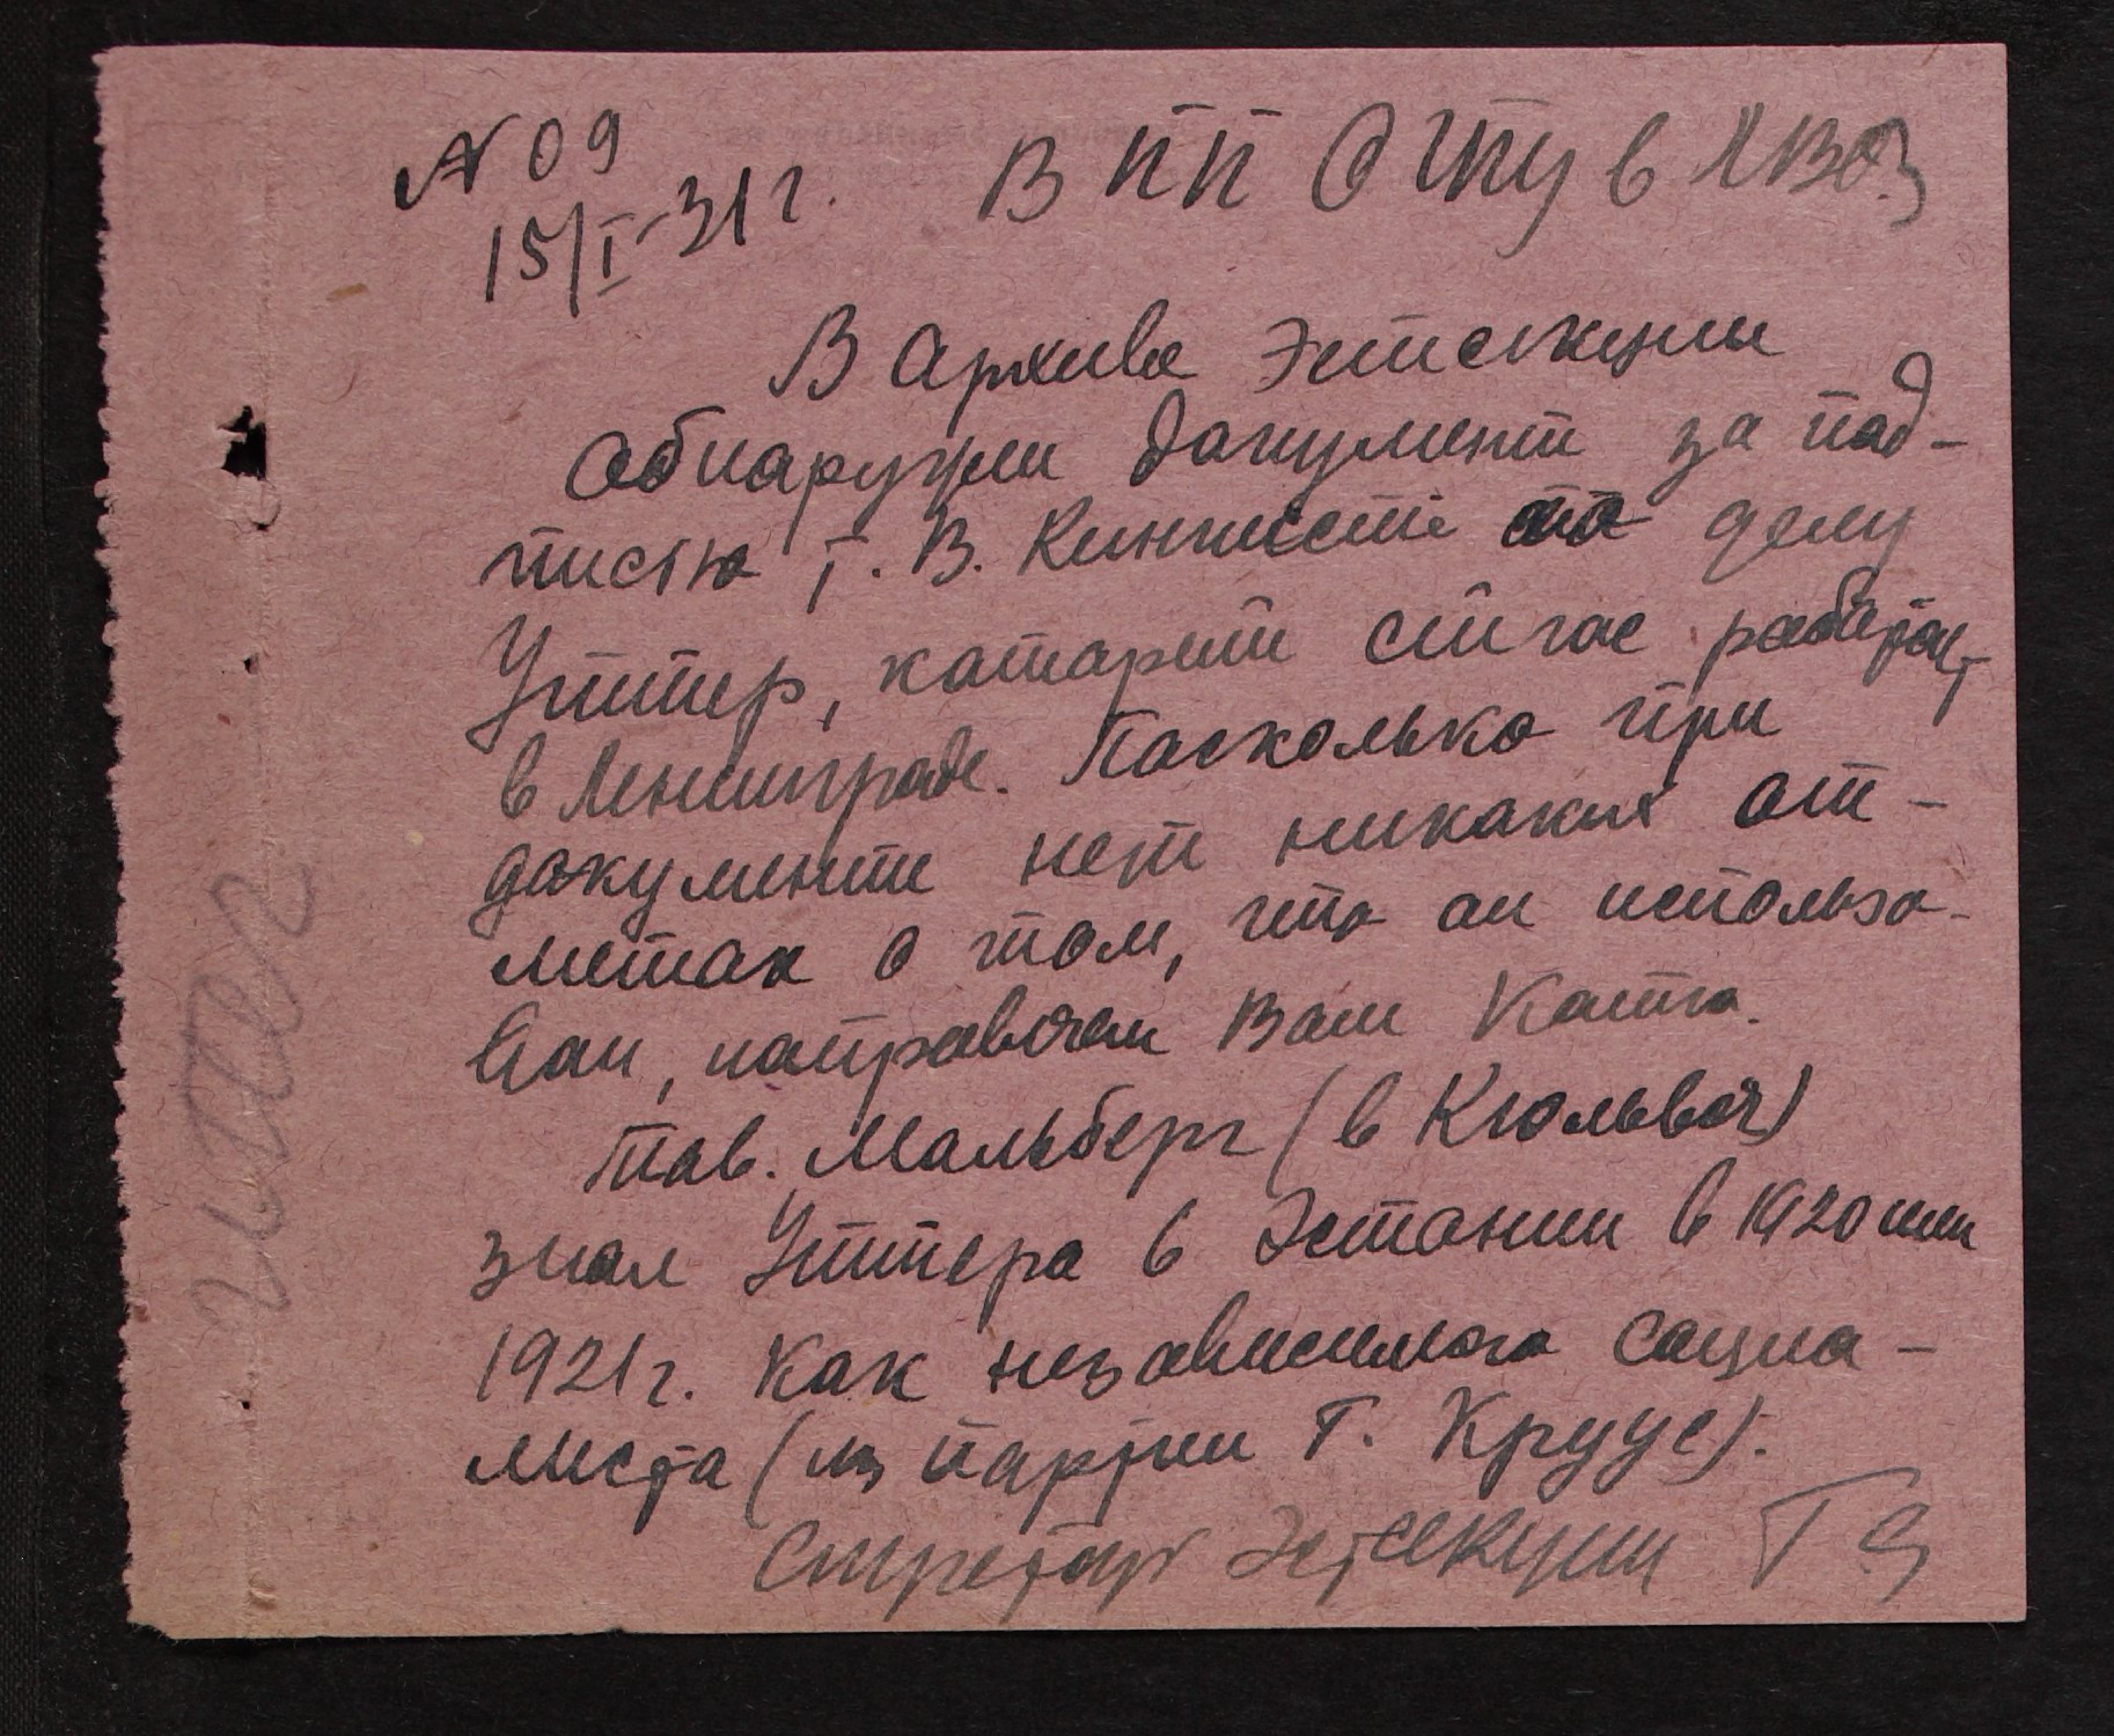 N 09
15/I-31 г.
В ПП ОГПУ в ЛВО
В Архиве Эстсекции
обнаружен документ за под-
писью т. В. Кингисепп по делу
Уттер, который сейчас работает
в Ленинграде. Поскольку при
документе нет никаких от-
меток о том, что он использо-
ван, направляем Вам копию.
Тов. Мальберг (в Кюльвая)
знал Уттера в Эстонии в 1920 или
1921 г. как независимого социа-
листа (из партии Г. Круус).
Секретарь Эстсекции